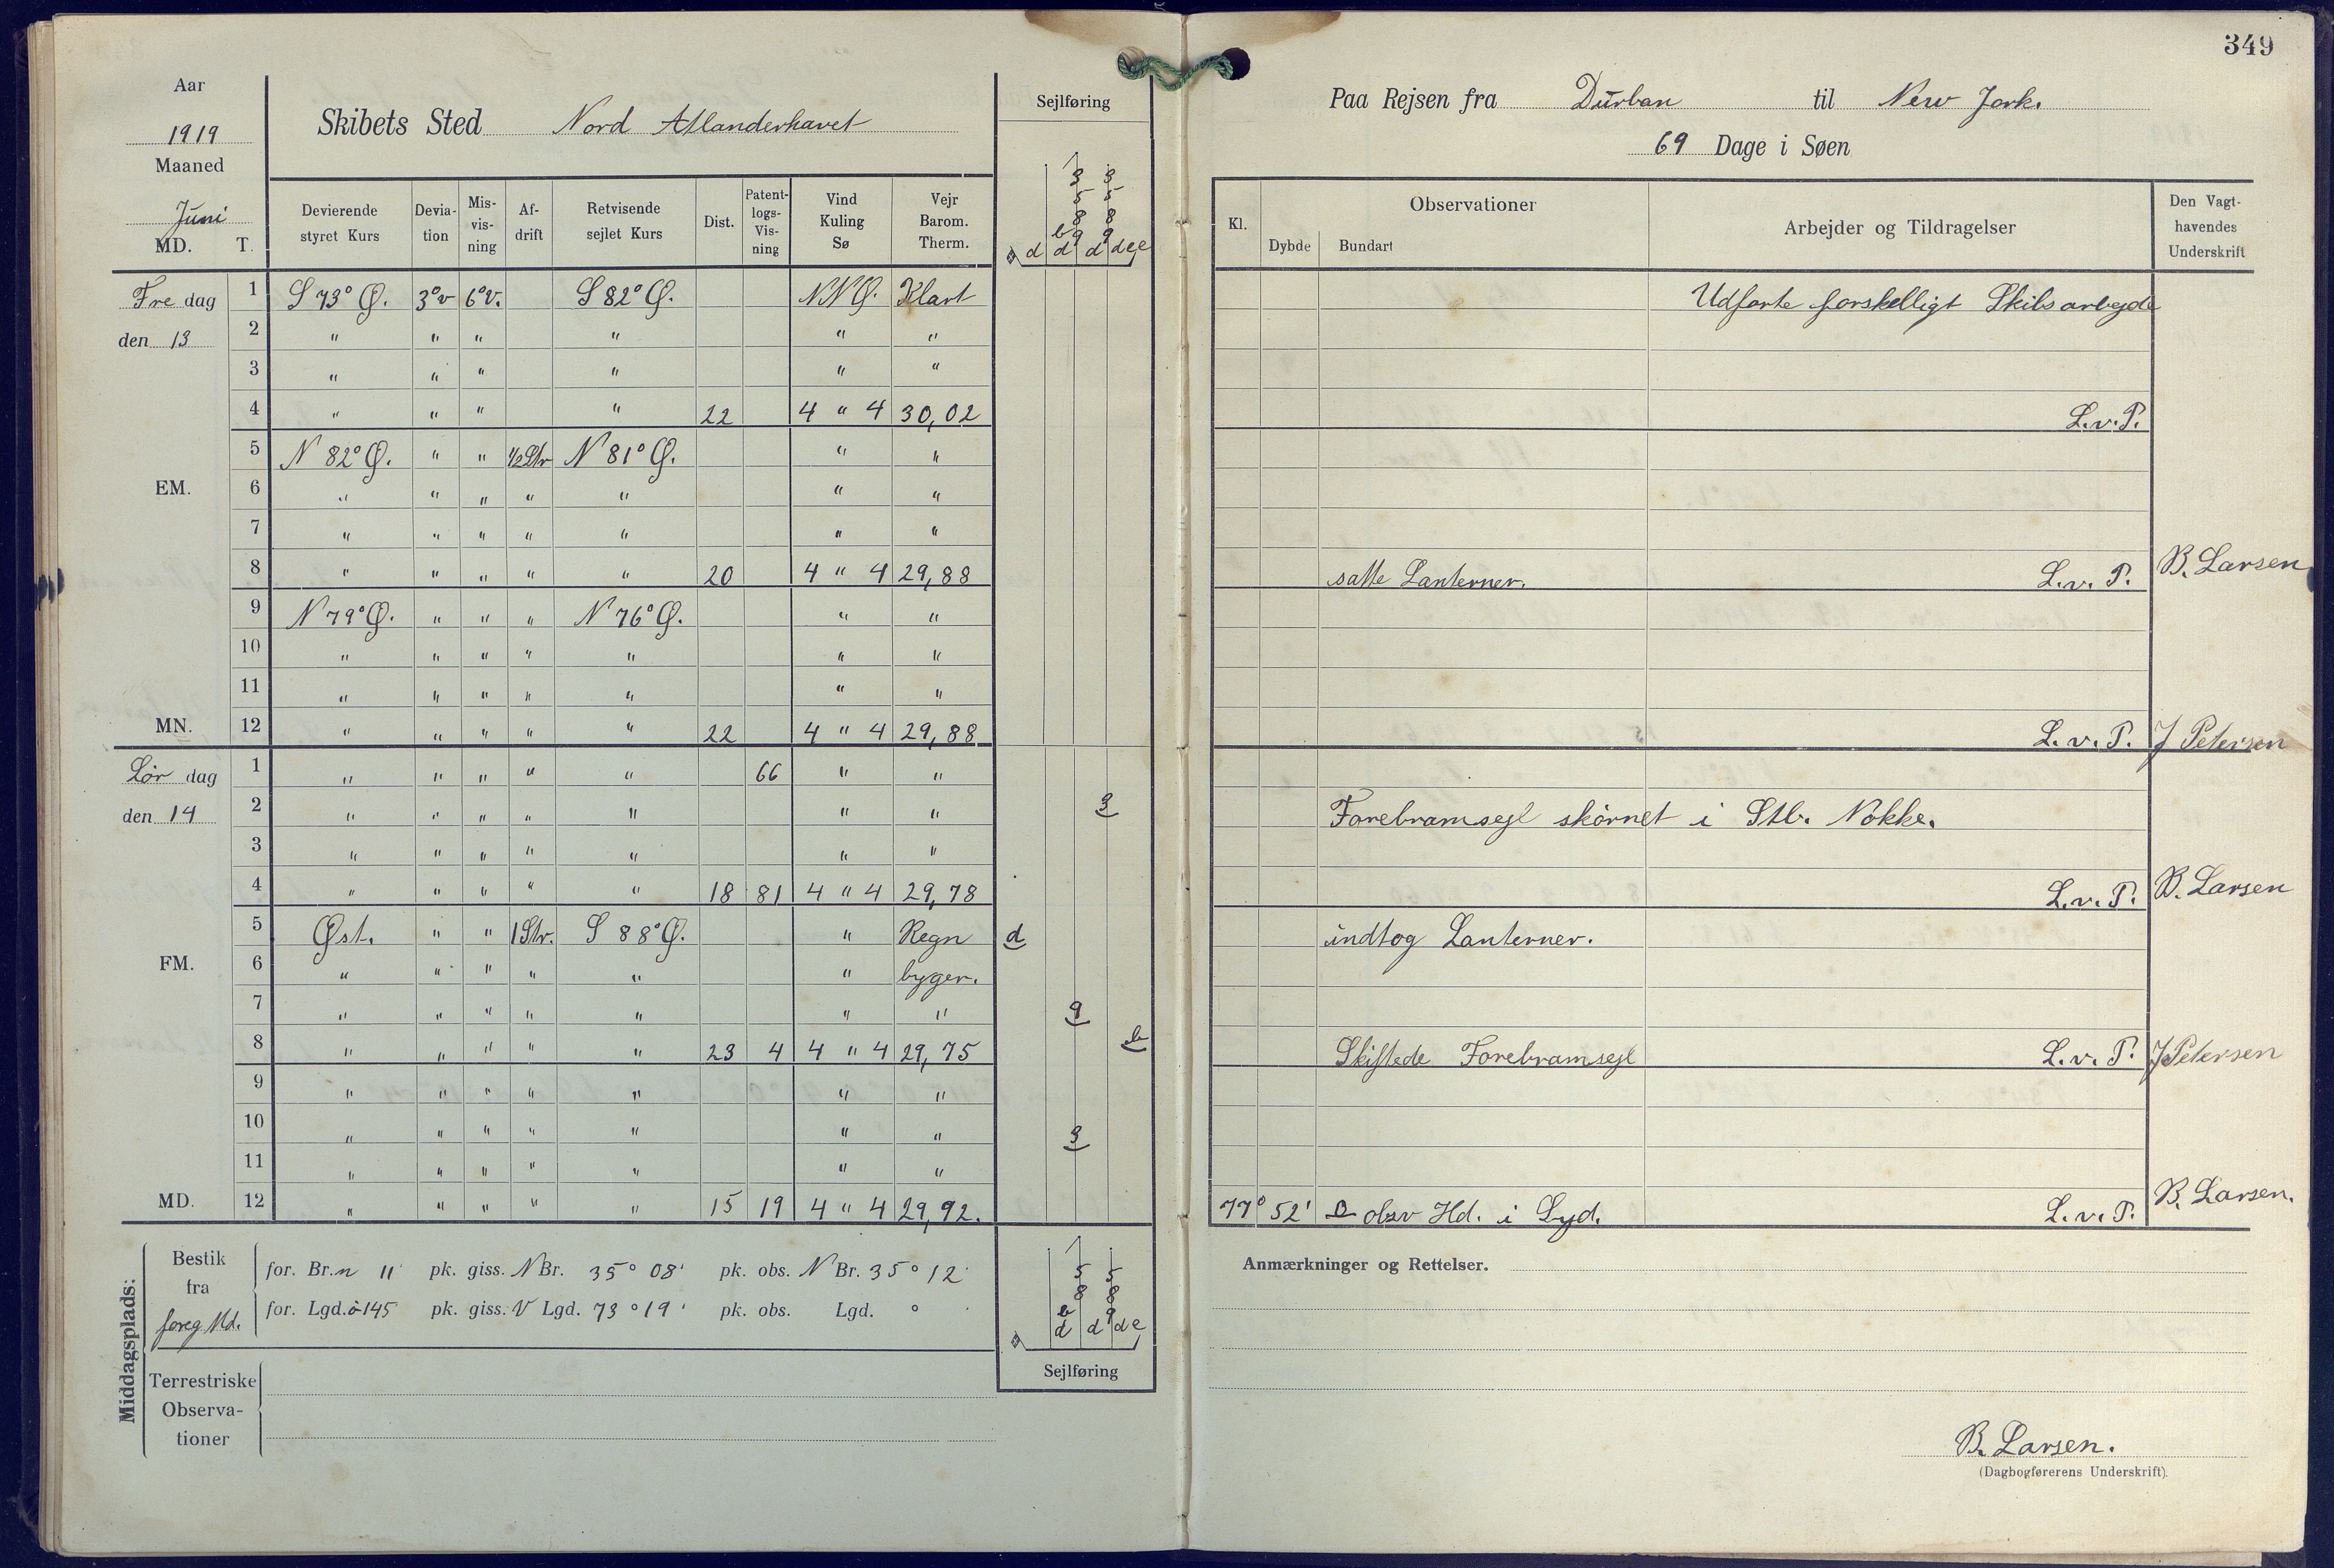 349
Aar
1919
Maaned
Juni
MD. T.
Skibets Sted Nord Atlanderhavet
Sejlføring
Paa Rejsen fra Durban til New Jork.
69 Dage i Søen
Devierende styret Kurs | Devia- tion | Mis- vis- ning | Af- drift | Retvisende sejlet Kurs | Dist. | Patent- logs- Vis- ning | Vind Kuling Sø | Vejr Barom. Therm.
Kl. | Observationer | Dybde | Bundart | Arbejder og Tildragelser | Den Vagt- havendes Underskrift
3 3
5 5
8 8
b 9 9
d d d d e e
Fre dag 1 S 73° Ø. 3° v 6° V. S 82° Ø. NNØ. Klart Udførte forskelligt Skibsarbejde
den 13 2 " " " " " "
3 " " " " " "
4 " " " " 22 4 " 4 30,02 L.v.P.
5 N 82° Ø. " " 1/2 Str N 81° Ø. " "
EM. 6 " " " " " " "
7 " " " " " " "
8 " " " " " 20 4 " 4 29,88 satte Lanterner. L.v.P. B. Larsen
9 N 79° Ø. " " " N 76° Ø. " "
10 " " " " " " "
11 " " " " " " "
MN. 12 " " " " " 22 4 " 4 29,88 L.v.P. J Petersen
Lør dag 1 " " " " " 66 " "
den 14 2 " " " " " " " 3 Forebramsejl skørnet i Stb. Nokke.
3 " " " " " " "
4 " " " " " 18 81 4 " 4 29,78 L.v.P. B. Larsen
5 Øst. " " 1 Str. S 88° Ø. " Regn d indtog Lanterner.
FM. 6 " " " " " " byger.
7 " " " " " " " 9
8 " " " " " 23 4 4 " 4 29,75 b Skiftede Forebramsejl L.v.P. J Petersen
9 " " " " " " "
10 " " " " " " " 3
11 " " " " " " "
MD. 12 " " " " " 15 19 4 " 4 29,92. 77° 52' obsv Hd. i Syd. L.v.P. B. Larsen.
Middagsplads:
Bestik fra foreg Md.
for. Br. n 11' pk. giss. N Br. 35° 08' pk. obs. N Br. 35° 12'
for. Lgd. ø 145 pk. giss. V Lgd. 73° 19' pk. obs. Lgd. °
5 5
8 8
b 9
d d d e
Sejlføring
Terrestriske
Observa-
tioner
Anmærkninger og Rettelser.
B. Larsen.
(Dagbogførerens Underskrift).